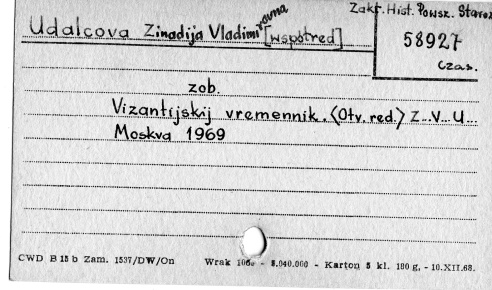 Zakł. Hist. Powsz. Staroż.
Udalcova Zinadija Vladimirovna [współred]
58927
Czas.
zob.
Vizantijskij vremennik. <Otv. red.> Z...V... U...
Moskva 1969
CWD B 15 b Zam. 1537/DW/On Wrak 106a - 8.040.000 - Karton 5 kl. 180 g. - 10.XII.68.